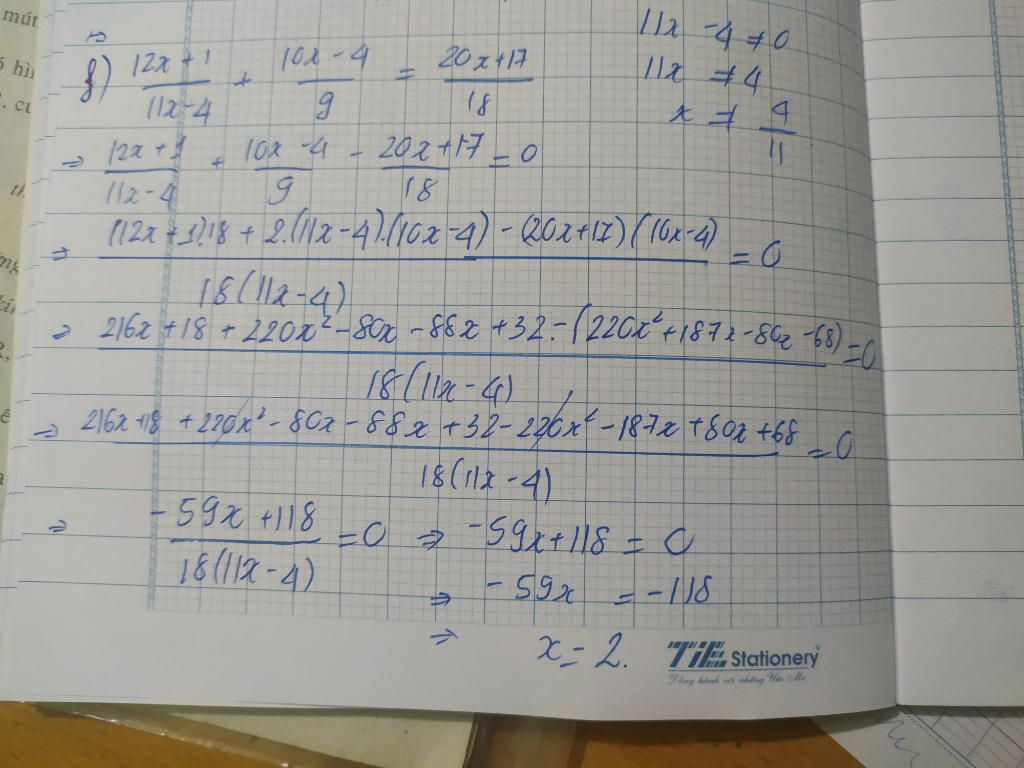 f) (12x+1)/(11x-4) + (10x-4)/9 = (20x+17)/18
11x - 4 ≠ 0
11x ≠ 4
x ≠ 4/11
⇒ (12x+1)/(11x-4) + (10x-4)/9 - (20x+17)/18 = 0
⇒ ((12x+1).18 + 2.(11x-4).(10x-4) - (20x+17)(10x-4))/(18(11x-4)) = 0
⇒ (216x + 18 + 220x² - 80x - 88x + 32 - (220x² + 187x - 80x - 68))/(18(11x-4)) = 0
⇒ (216x + 18 + 220x² - 80x - 88x + 32 - 220x² - 187x + 80x + 68)/(18(11x-4)) = 0
⇒ (-59x + 118)/(18(11x-4)) = 0 ⇒ -59x + 118 = 0
⇒ -59x = -118
⇒ x = 2.
TiE Stationery
Đồng hành với những Ước Mơ